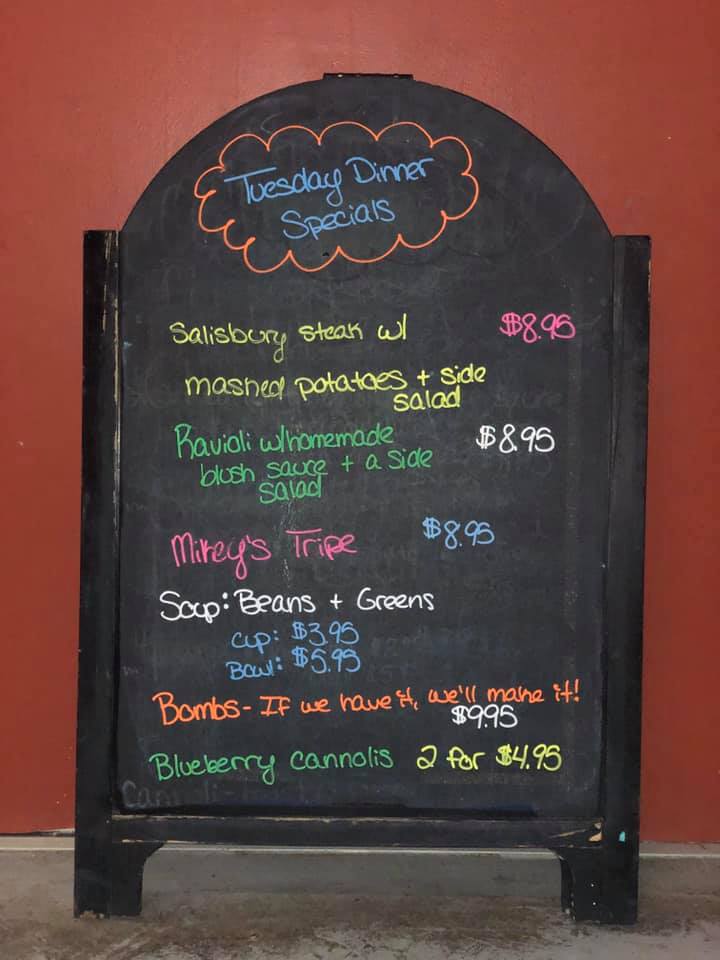 Tuesday Dinner
Specials
Salisbury steak w/ $8.95
mashed potatoes + side
salad
Ravioli w/homemade $8.95
blush sauce + a side
salad
Mikey's Tripe $8.95
Soup: Beans + Greens
cup: $3.95
Bowl: $5.95
Bombs- If we have it, we'll make it!
$9.95
Blueberry cannolis 2 for $4.95